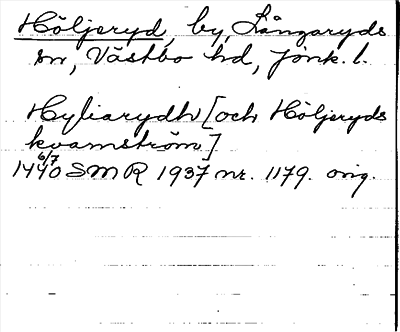 Höljeryd, by, Långaryds
sn, Västbo hd, Jönk. l.
Hyliarydh [och Höljeryds
kvarnström]
6/7
1440 SMR 1937 nr. 1179. orig.